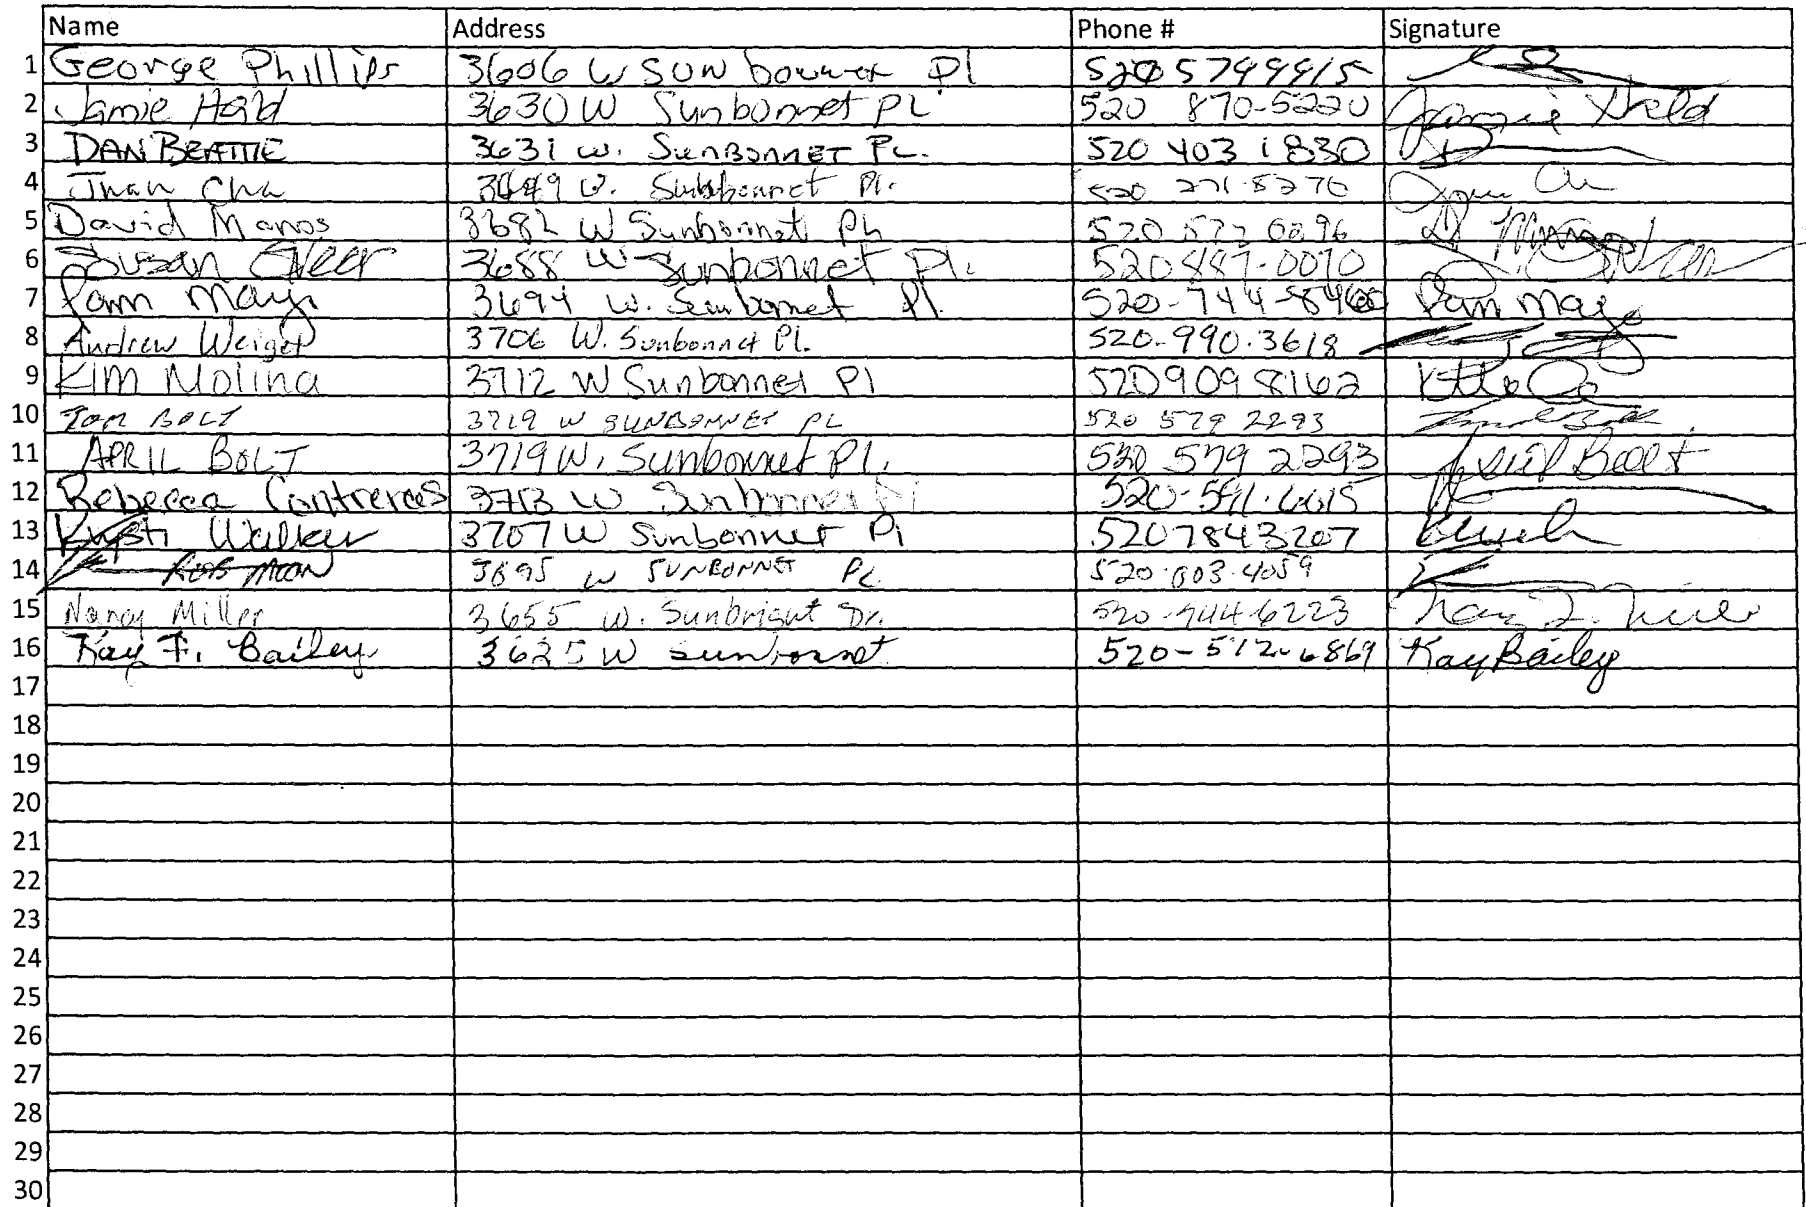 Name Address Phone # Signature
1 George Phillips 3606 W Sun bonnet Pl 520 5799915
2 Jamie Held 3630 W Sunbonnet PL 520 870-5220 Jamie Held
3 DAN BEATTIE 3631 W. SUNBONNET PL. 520 403 1830
4 Juan Cha W. Sunbonnet Pl. 520
5 David Manos 3682 W Sunbonnet PL 520
6 Susan 3688 W Sunbonnet Pl. 520 887-0070
7 Pam Mayo 3694 W. Sunbonnet Pl. 520-744- Pam Mayo
8 Andrew Weigel 3706 W. Sunbonnet Pl. 520-990-3618
9 Kim Molina 3712 W Sunbonnet Pl 520 909 8162
10 TOM BOLT 3719 W SUNBONNET PL 520 579 2293
11 APRIL BOLT 3719 W. Sunbonnet Pl. 520 579 2293 April Bolt
12 Rebecca Contreras 3713 W Sunbonnet Pl 520-591-6615
13 Kristi Walker 3707 W Sunbonnet Pl 520 7843207
14 ROB MOON 3695 W SUNBONNET PL 520-603-4059
15 Nancy Miller 3655 W. Sunbright Dr. 520-744-6223
16 Kay F. Bailey 3625 W Sunbonnet 520-572-6869 Kay Bailey
17
18
19
20
21
22
23
24
25
26
27
28
29
30